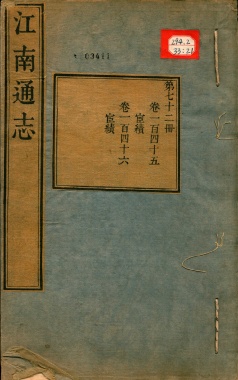 江南通志
第七十二冊
卷一百四十五
宦績
卷一百四十六
宦績